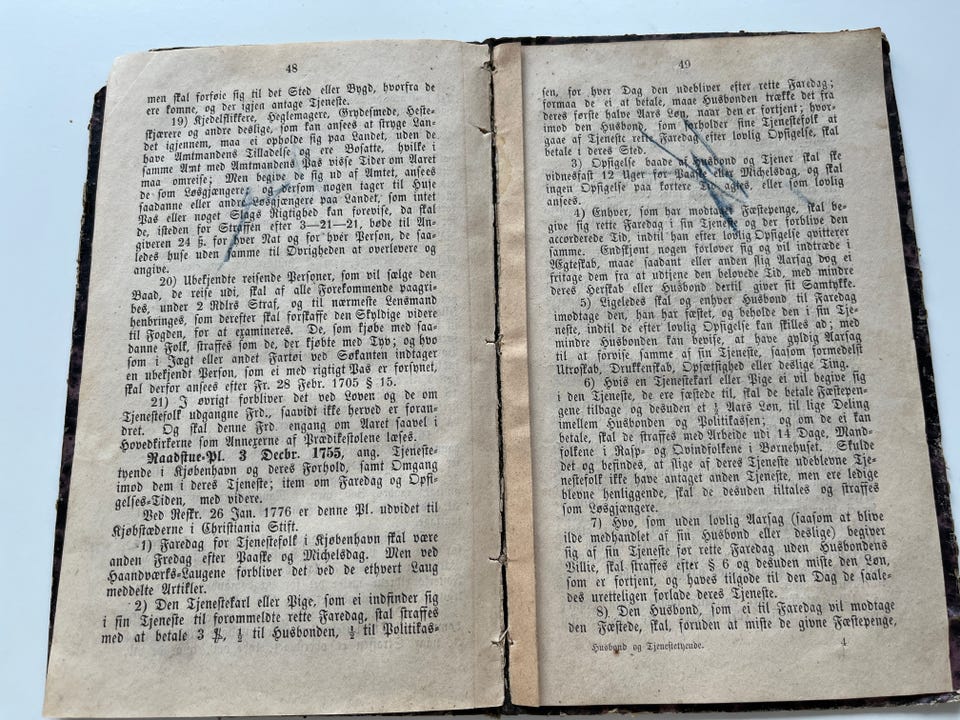 48
men skal forføie sig til det Sted eller Bygd, hvorfra de
ere komne, og der igjen antage Tjeneste.
19) Kjedelflikkere, Heglemagere, Grydesmede, Heste-
skjærere og andre deslige, som kan ansees at stryge Lan-
det igjennem, maa ei opholde sig paa Landet, uden de
have Amtmandens Tilladelse og ere Bosatte, hvilke i
samme Amt med Amtmandens Pas visse Tider om Aaret
maa omreise; Men begive de sig ud af Amtet, ansees
de som Løsgjængere, og dersom nogen tager til Huse
saadanne eller andre Løsgjængere paa Landet, som intet
Pas eller noget Slags Rigtighed kan forevise, da skal
de, isteden for Straffen efter 3—21—21, bøde til An-
giveren 24 ß. for hver Nat og for hver Person, de saa-
ledes huse uden samme til Øvrigheden at overlevere og
angive.
20) Ubekjendte reisende Personer, som vil sælge den
Baad, de reise udi, skal af alle Forekommende paagri-
bes, under 2 Rdlrs Straf, og til nærmeste Lensmand
henbringes, som derefter skal forskaffe den Skyldige videre
til Fogden, for at examineres. De, som kjøbe med saa-
danne Folk, straffes som de, der kjøbte med Tyv; og hvo
som i Jægt eller andet Fartøi ved Søkanten indtager
en ubekjendt Person, som ei med rigtigt Pas er forsynet,
skal derfor ansees efter Fr. 28 Febr. 1705 § 15.
21) I øvrigt forbliver det ved Loven og de om
Tjenestefolk udgangne Frd., saavidt ikke herved er foran-
dret. Og skal denne Frd. engang om Aaret saavel i
Hovedkirkerne som Annexerne af Prædikestolene læses.
Raadstue-Pl. 3 Decbr. 1755, ang. Tjeneste-
tyende i Kjøbenhavn og deres Forhold, samt Omgang
imod dem i deres Tjeneste; item om Faredag og Opsi-
gelses-Tiden, med videre.
Ved Reskr. 26 Jan. 1776 er denne Pl. udvidet til
Kjøbstæderne i Christiania Stift.
1) Faredag for Tjenestefolk i Kjøbenhavn skal være
anden Fredag efter Paaske og Michelsdag. Men ved
Haandværks-Laugene forbliver det ved de ethvert Laug
meddelte Artikler.
2) Den Tjenestekarl eller Pige, som ei indfinder sig
i sin Tjeneste til forommeldte rette Faredag, skal straffes
med at betale 3 ℳ, ½ til Husbonden, ½ til Politikas-
49
sen, for hver Dag den udebliver efter rette Faredag;
formaa de ei at betale, maae Husbonden trække det fra
deres første halve Aars Løn, naar den er fortjent; hvor-
imod den Husbond, som forholder sine Tjenestefolk at
gaae af Tjeneste rette Faredag efter lovlig Opsigelse, skal
betale i deres Sted.
3) Opsigelse baade af Husbond og Tjener skal ske
vidnesfast 12 Uger før Paaske eller Michelsdag, og skal
ingen Opsigelse paa kortere Tid agtes, eller som lovlig
ansees.
4) Enhver, som har modtaget Fæstepenge, skal be-
give sig rette Faredag i sin Tjeneste og der forblive den
accorderede Tid, indtil han efter lovlig Opsigelse qvitterer
samme. Endskjønt nogen forlover sig og vil indtræde i
Ægteskab, maae saadant eller anden slig Aarsag dog ei
fritage dem fra at udtjene den belovede Tid, med mindre
deres Herskab eller Husbond dertil giver sit Samtykke.
5) Ligeledes skal og enhver Husbond til Faredag
imodtage den, han har fæstet, og beholde den i sin Tje-
neste, indtil de efter lovlig Opsigelse kan skilles ad; med
mindre Husbonden kan bevise, at have gyldig Aarsag
til at forvise samme af sin Tjeneste, saasom formedelst
Utroskab, Drukkenskab, Opsætsighed eller deslige Ting.
6) Hvis en Tjenestekarl eller Pige ei vil begive sig
i den Tjeneste, de ere fæstede til, skal de betale Fæstepen-
gene tilbage og desuden et ½ Aars Løn, til lige Deling
imellem Husbonden og Politikassen; og om de ei kan
betale, skal de straffes med Arbeide udi 14 Dage, Mand-
folkene i Rasp- og Qvindfolkene i Børnehuset. Skulde
det og befindes, at slige af deres Tjeneste udeblevne Tje-
nestefolk ikke have antaget anden Tjeneste, men ere ledige
blevne henliggende, skal de desuden tiltales og straffes
som Løsgjængere.
7) Hvo, som uden lovlig Aarsag (saasom at blive
ilde medhandlet af sin Husbond eller deslige) begiver
sig af sin Tjeneste før rette Faredag uden Husbondens
Villie, skal straffes efter § 6 og desuden miste den Løn,
som er fortjent, og haves tilgode til den Dag de saale-
des uretteligen forlade deres Tjeneste.
8) Den Husbond, som ei til Faredag vil modtage
den Fæstede, skal, foruden at miste de givne Fæstepenge,
Husbond og Tjenestetyende.
4